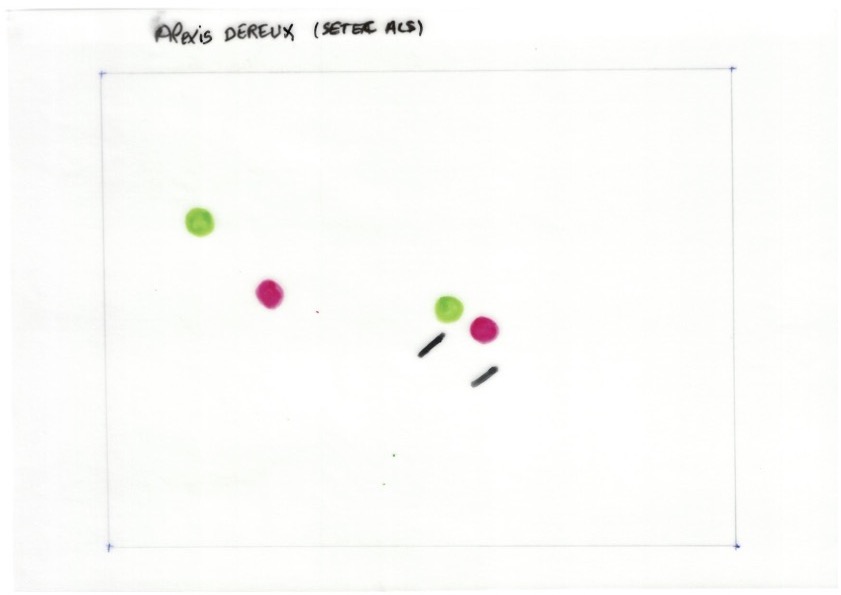 Alexis DEREUX (SETEC ALS)